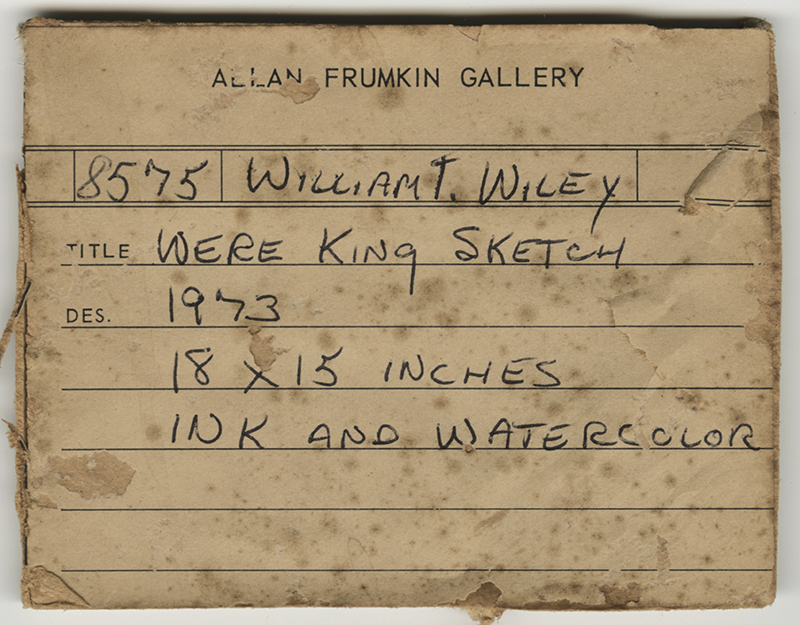 ALLAN FRUMKIN GALLERY
8575 WILLIAM T. WILEY
TITLE WERE KING SKETCH
DES. 1973
18 X 15 INCHES
INK AND WATERCOLOR